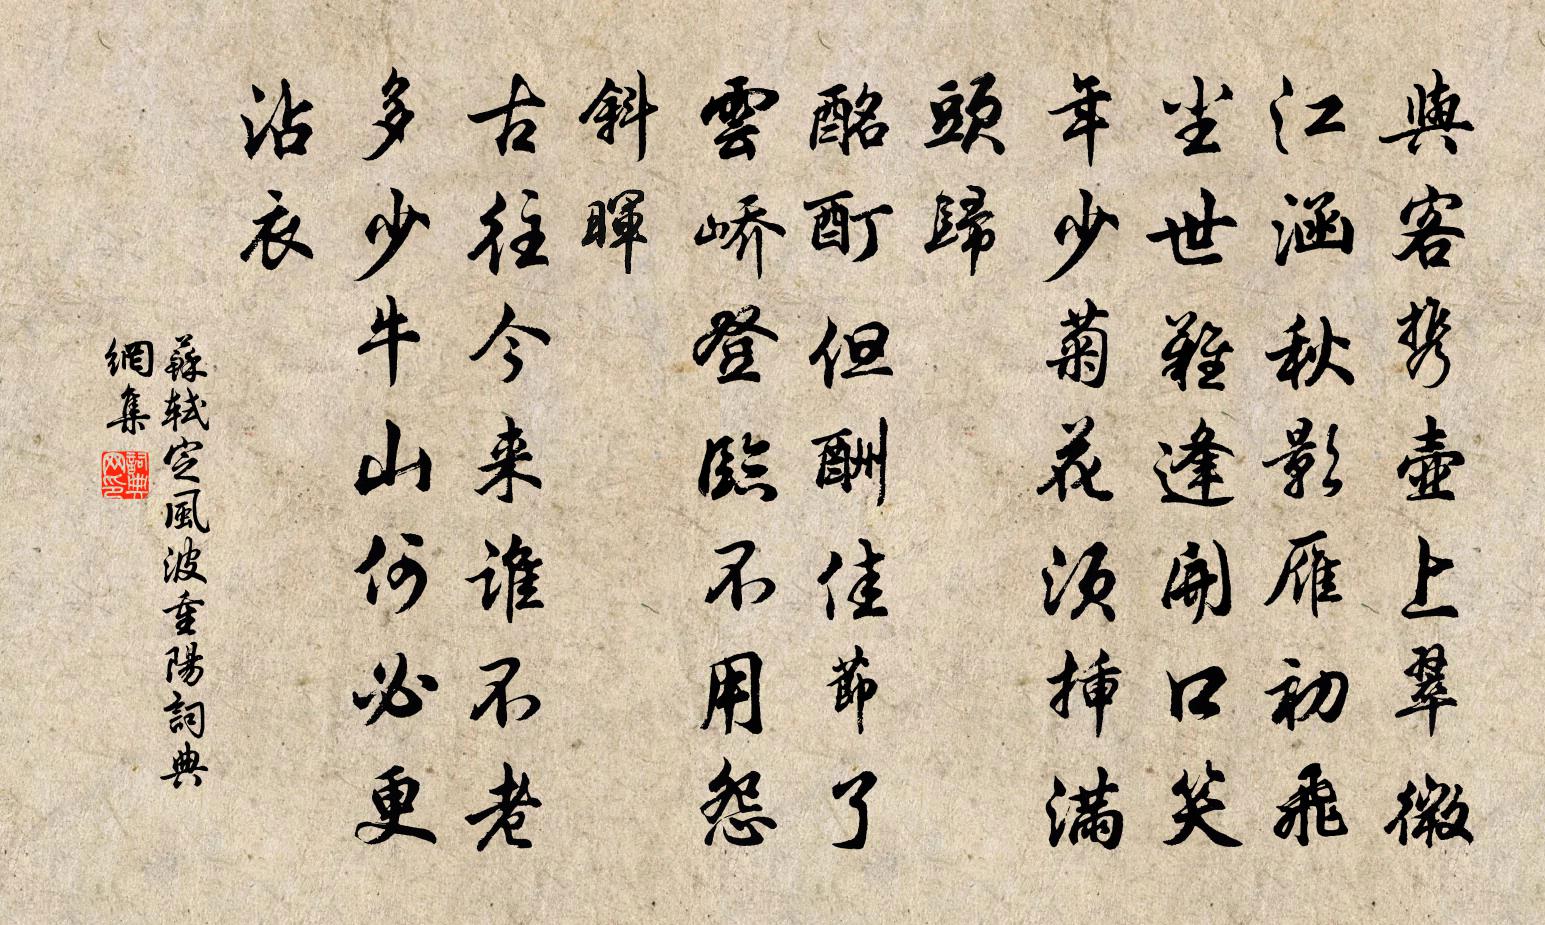 與客携壺上翠微
江涵秋影雁初飛
尘世難逢開口笑
年少菊花須插滿
頭歸
酩酊但酬佳節了
雲嶠登臨不用怨
斜暉
古往今来誰不老
多少牛山何必更
沾衣
蘇軾定風波重陽詞典
網集
詞典
网印